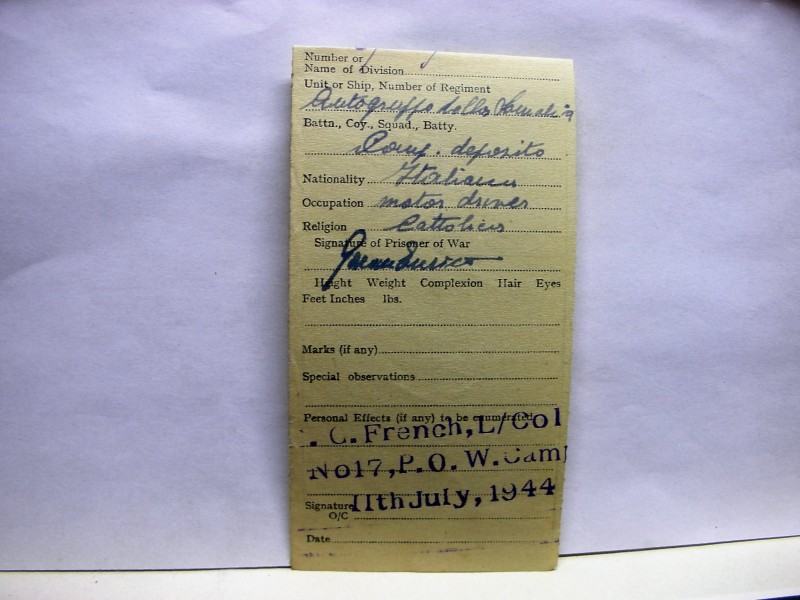 Number or
Name of Division
Unit or Ship, Number of Regiment
Autogruppo della Somalia
Battn., Coy., Squad., Batty.
Comp. deposito
Nationality Italiana
Occupation motor driver
Religion Cattolica
Signature of Prisoner of War
Height Weight Complexion Hair Eyes
Feet Inches lbs.
Marks (if any)
Special observations
Personal Effects (if any) to be enumerated
. C. French, L/Col
No17, P. O. W. Camp
11th July, 1944
Signature
O/C
Date